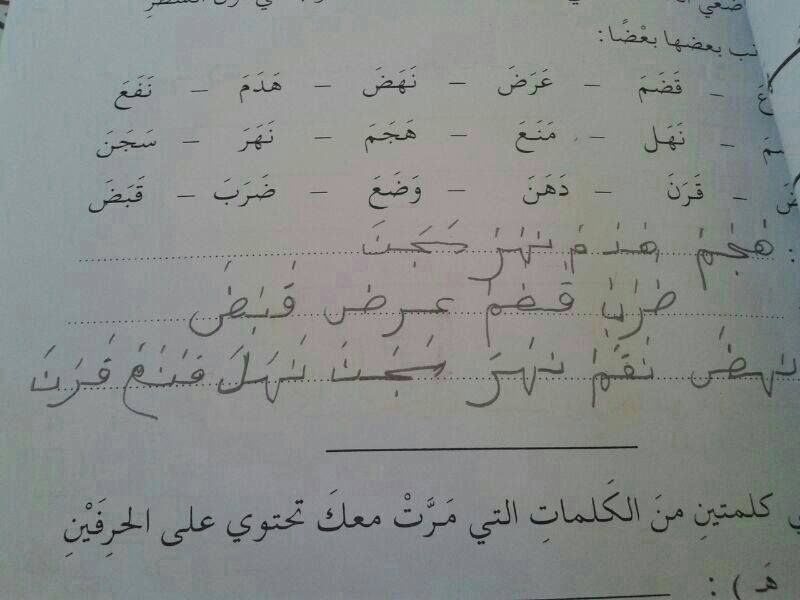 نب بعضها بعْضًا :
قَضَمَ – عَرَضَ – نَهَضَ – هَدَمَ – نَفَعَ
نَهَل – مَنَعَ – هَجَمَ – نَهَرَ – سَجَنَ
قَرَنَ – دَهَنَ – وَضَعَ – ضَرَبَ – قَبَضَ
هَجَمَ هَدَمَ نَهَرَ سَجَنَ
ضرب قضم عرض قَبَضَ
نهض نَقَمَ نهَرَ سَجَنَ نَهَلَ قَرَنَ
كلمتينِ منَ الكَلماتِ التي مَرَّتْ معكَ تحتوي على الحرفَيْنِ